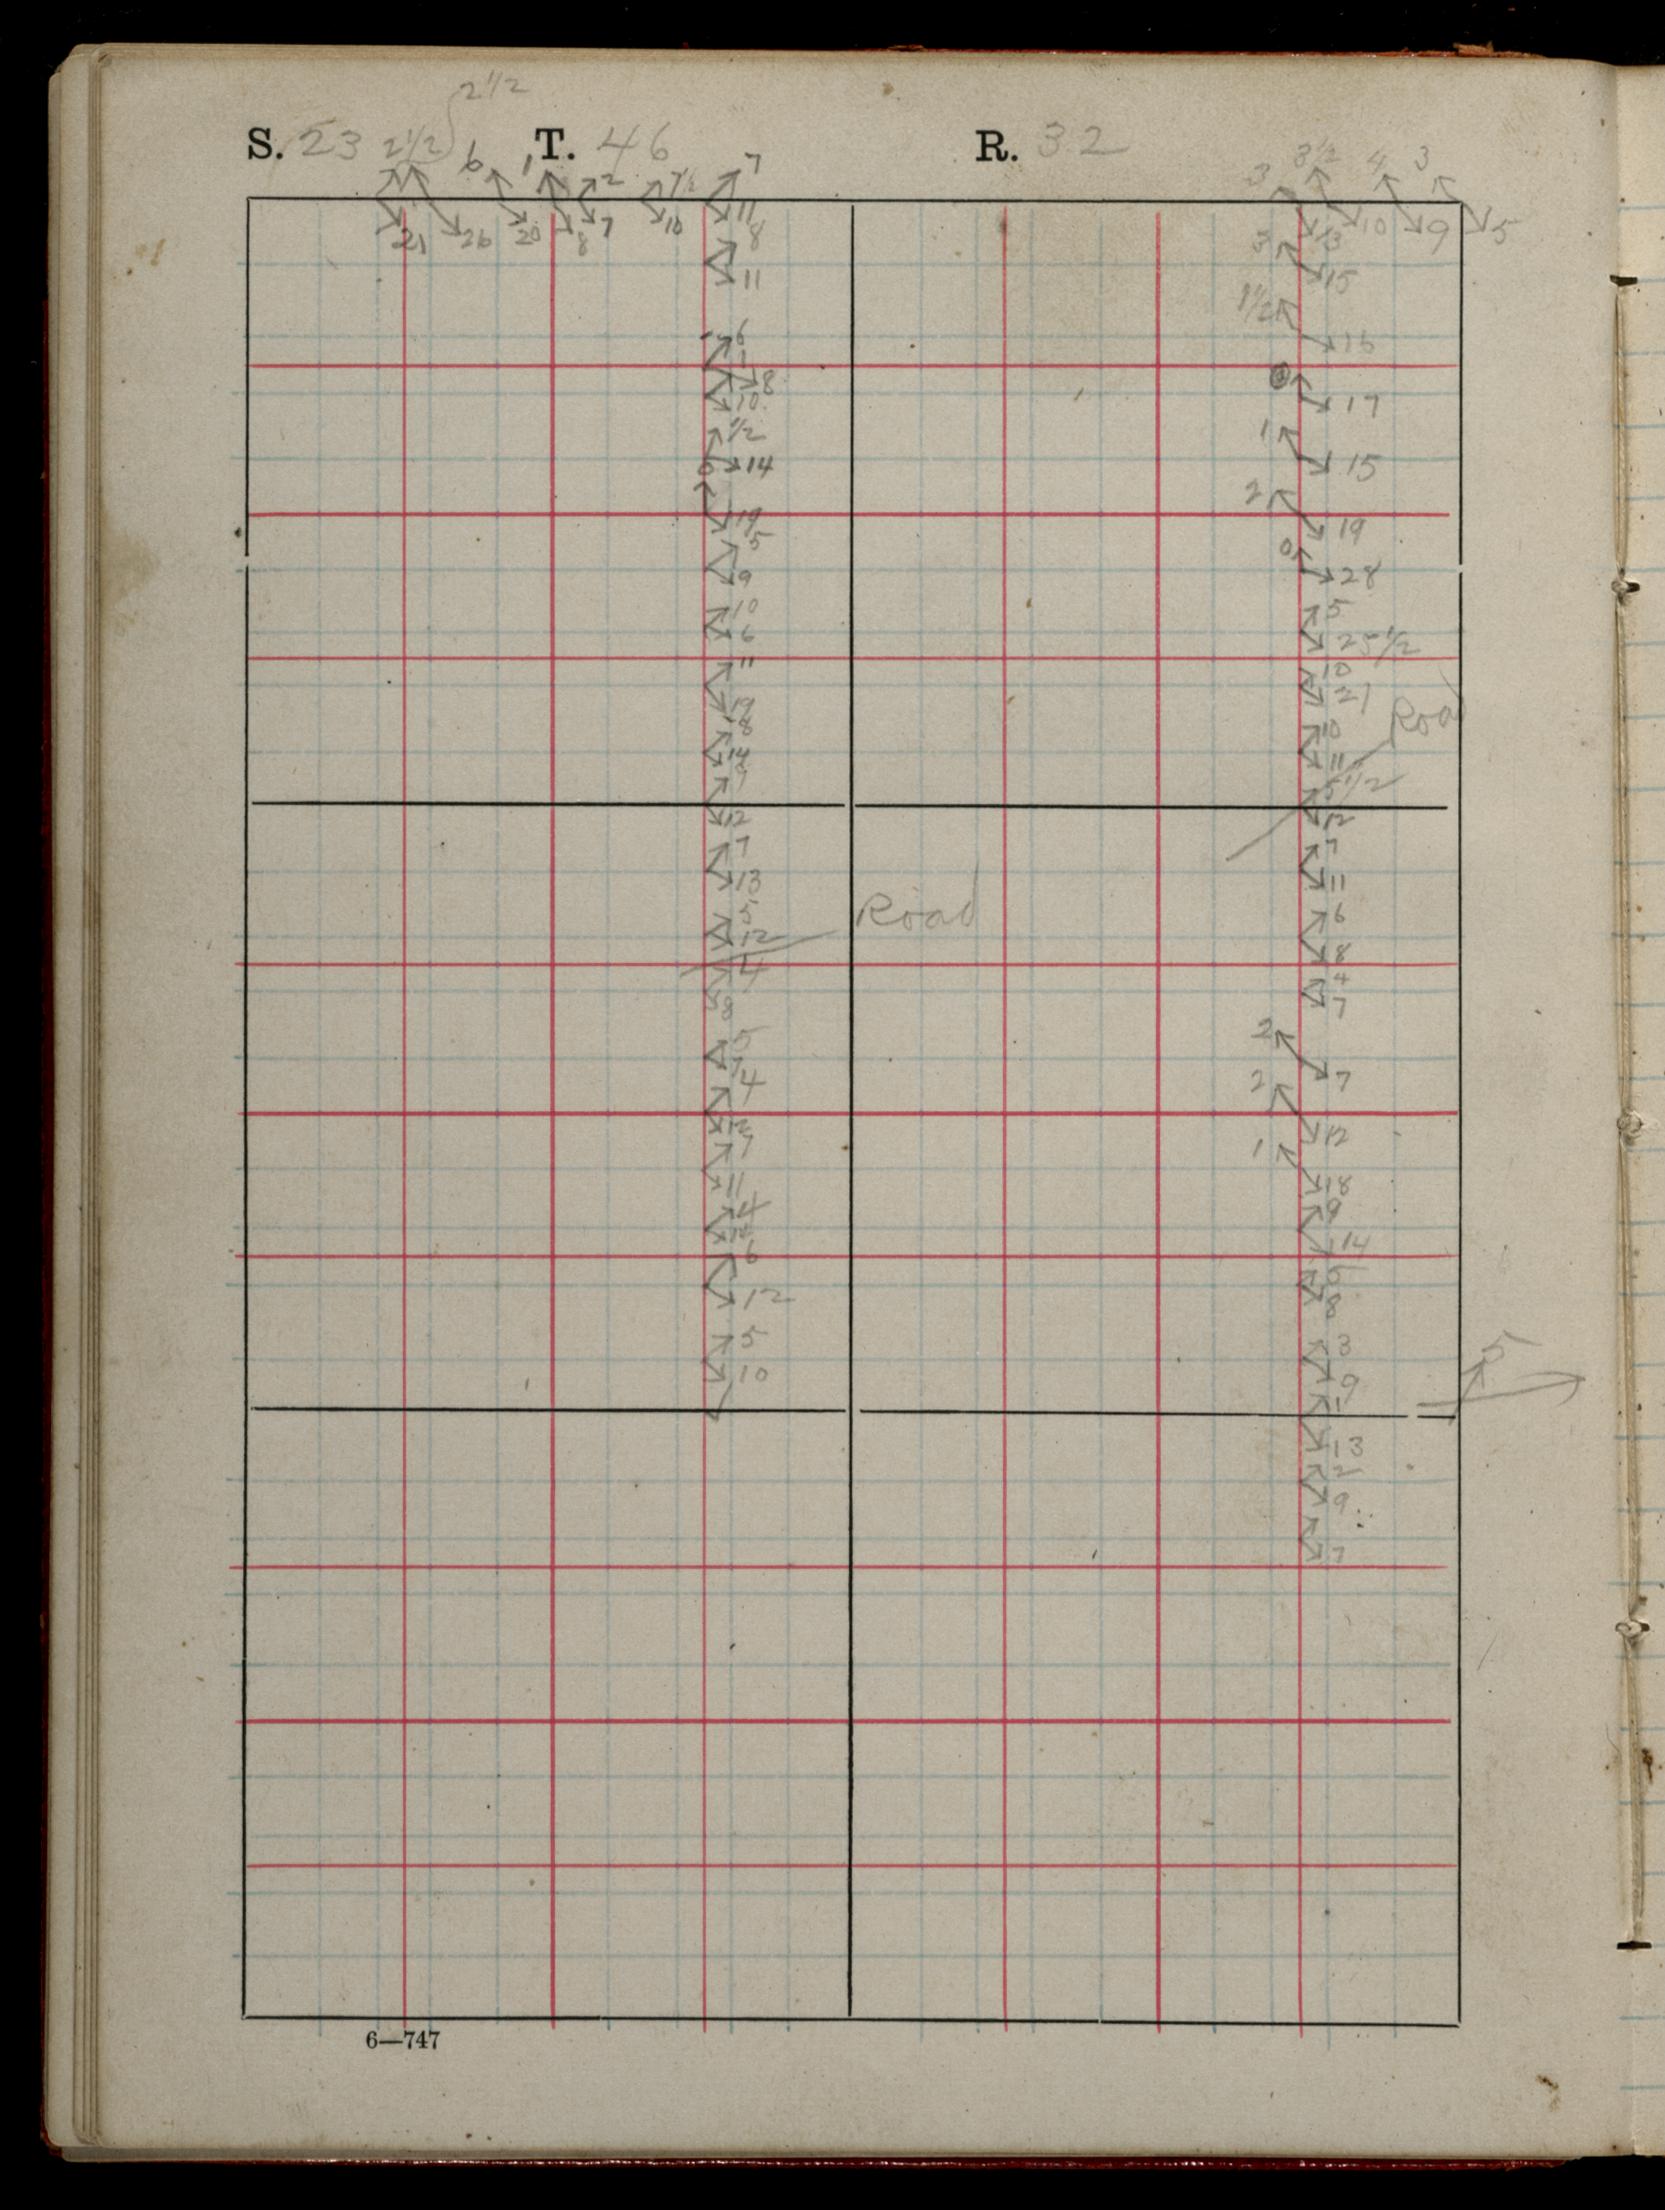 2 1/2
S. 23 2 1/2 T. 46 R. 32
6 1 2 7 1/2 7 3 3 1/2 4 3
21 26 20 8 7 10 11 13 10 9 5
8 3
11 15
1 1/2
6 16
8
10 17
1/2 1
14 15
2
19 19
5 0
9 28
10 5
6 25 1/2
11 10
19 21
8 10 Road
14 11
7 5 1/2
12 12
7 7
13 11
5 6
12 Road 8
4 4
8 7
5 2
7 7
4 2
12 12
7 1
11 18
4 9
12 14
6 5
12 8
5 3 5
10 9
1
13
2
9
7
6—747